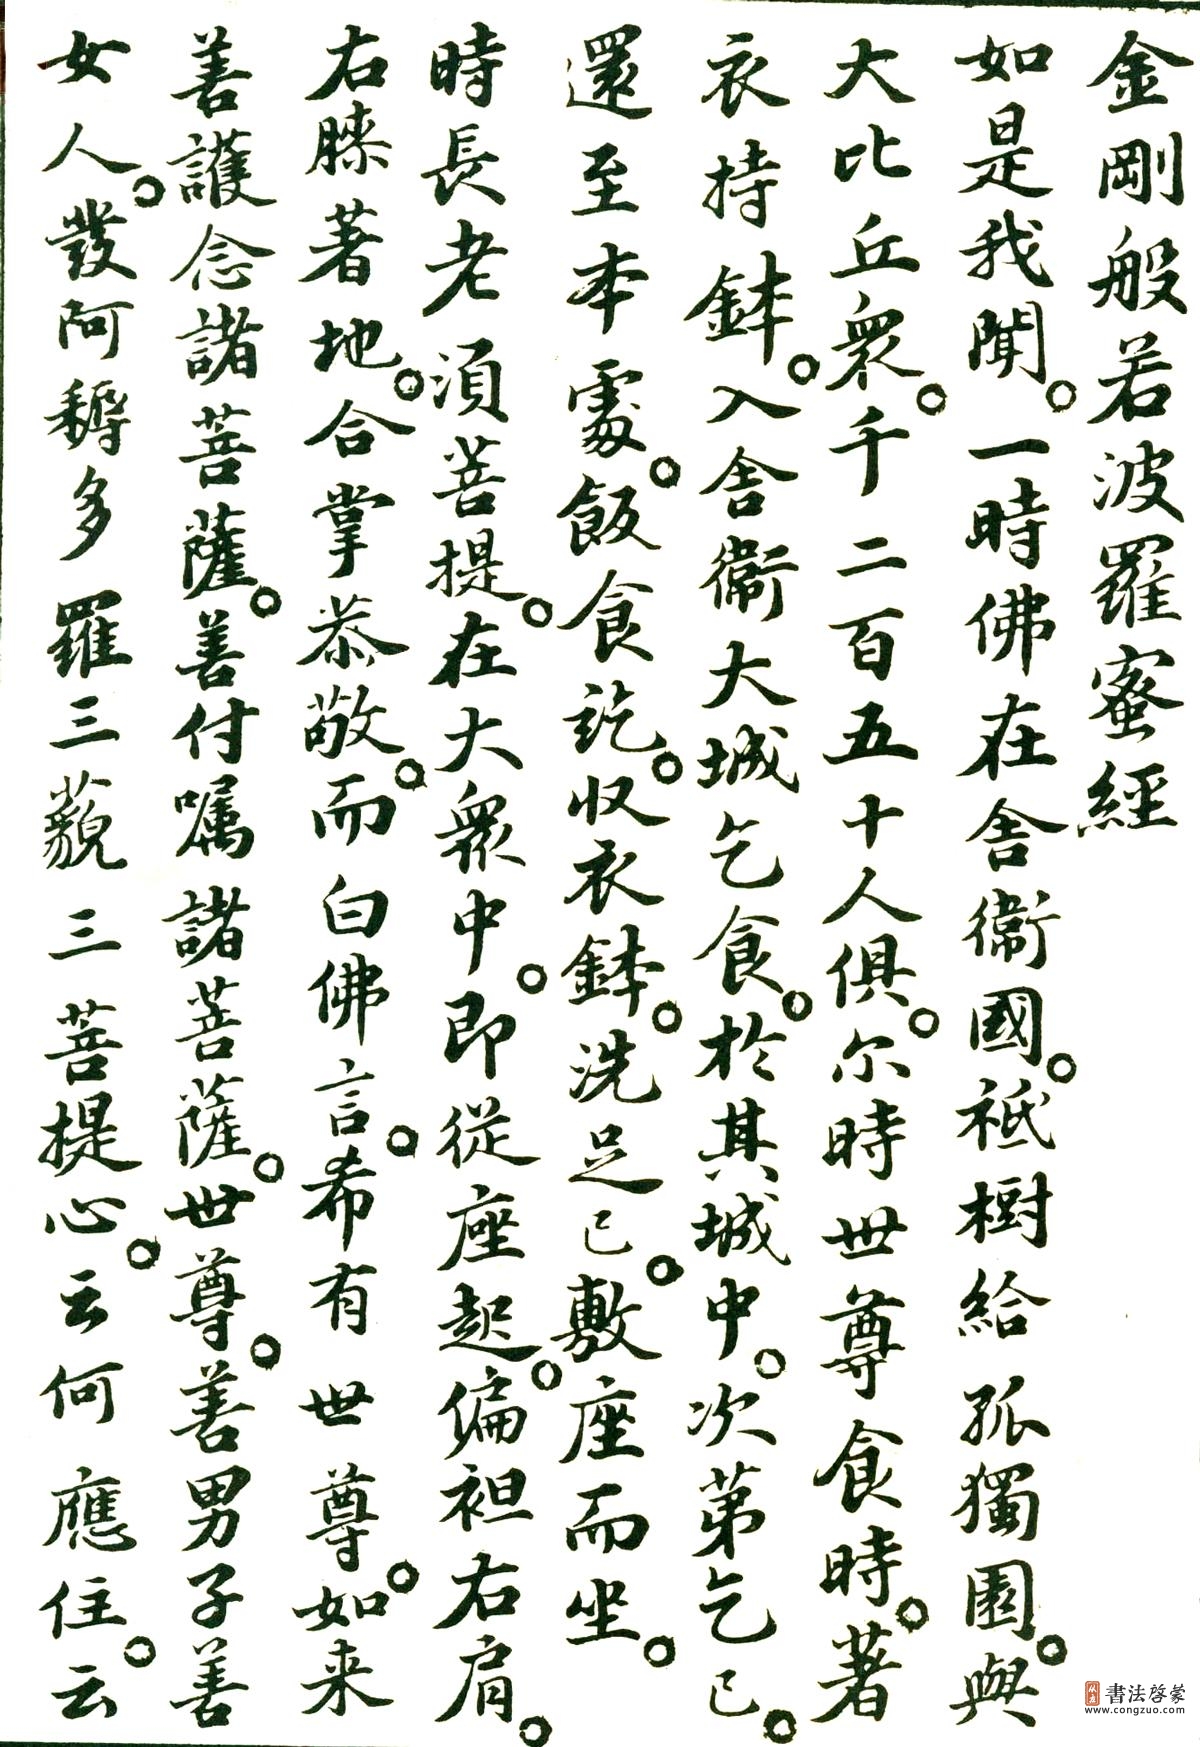 金剛般若波羅蜜經
如是我聞。一時佛在舍衞國。祇樹給孤獨園。與
大比丘衆。千二百五十人俱。尔時世尊食時。著
衣持鉢。入舍衞大城乞食。於其城中。次第乞已。
還至本處。飯食訖。収衣鉢。洗足已。敷座而坐。
時長老須菩提。在大衆中。即從座起。偏袒右肩。
右膝著地。合掌恭敬。而白佛言。希有世尊。如来
善護念諸菩薩。善付嘱諸菩薩。世尊。善男子善
女人。發阿耨多羅三藐三菩提心。云何應住。云
書法啓蒙
www.congzuo.com